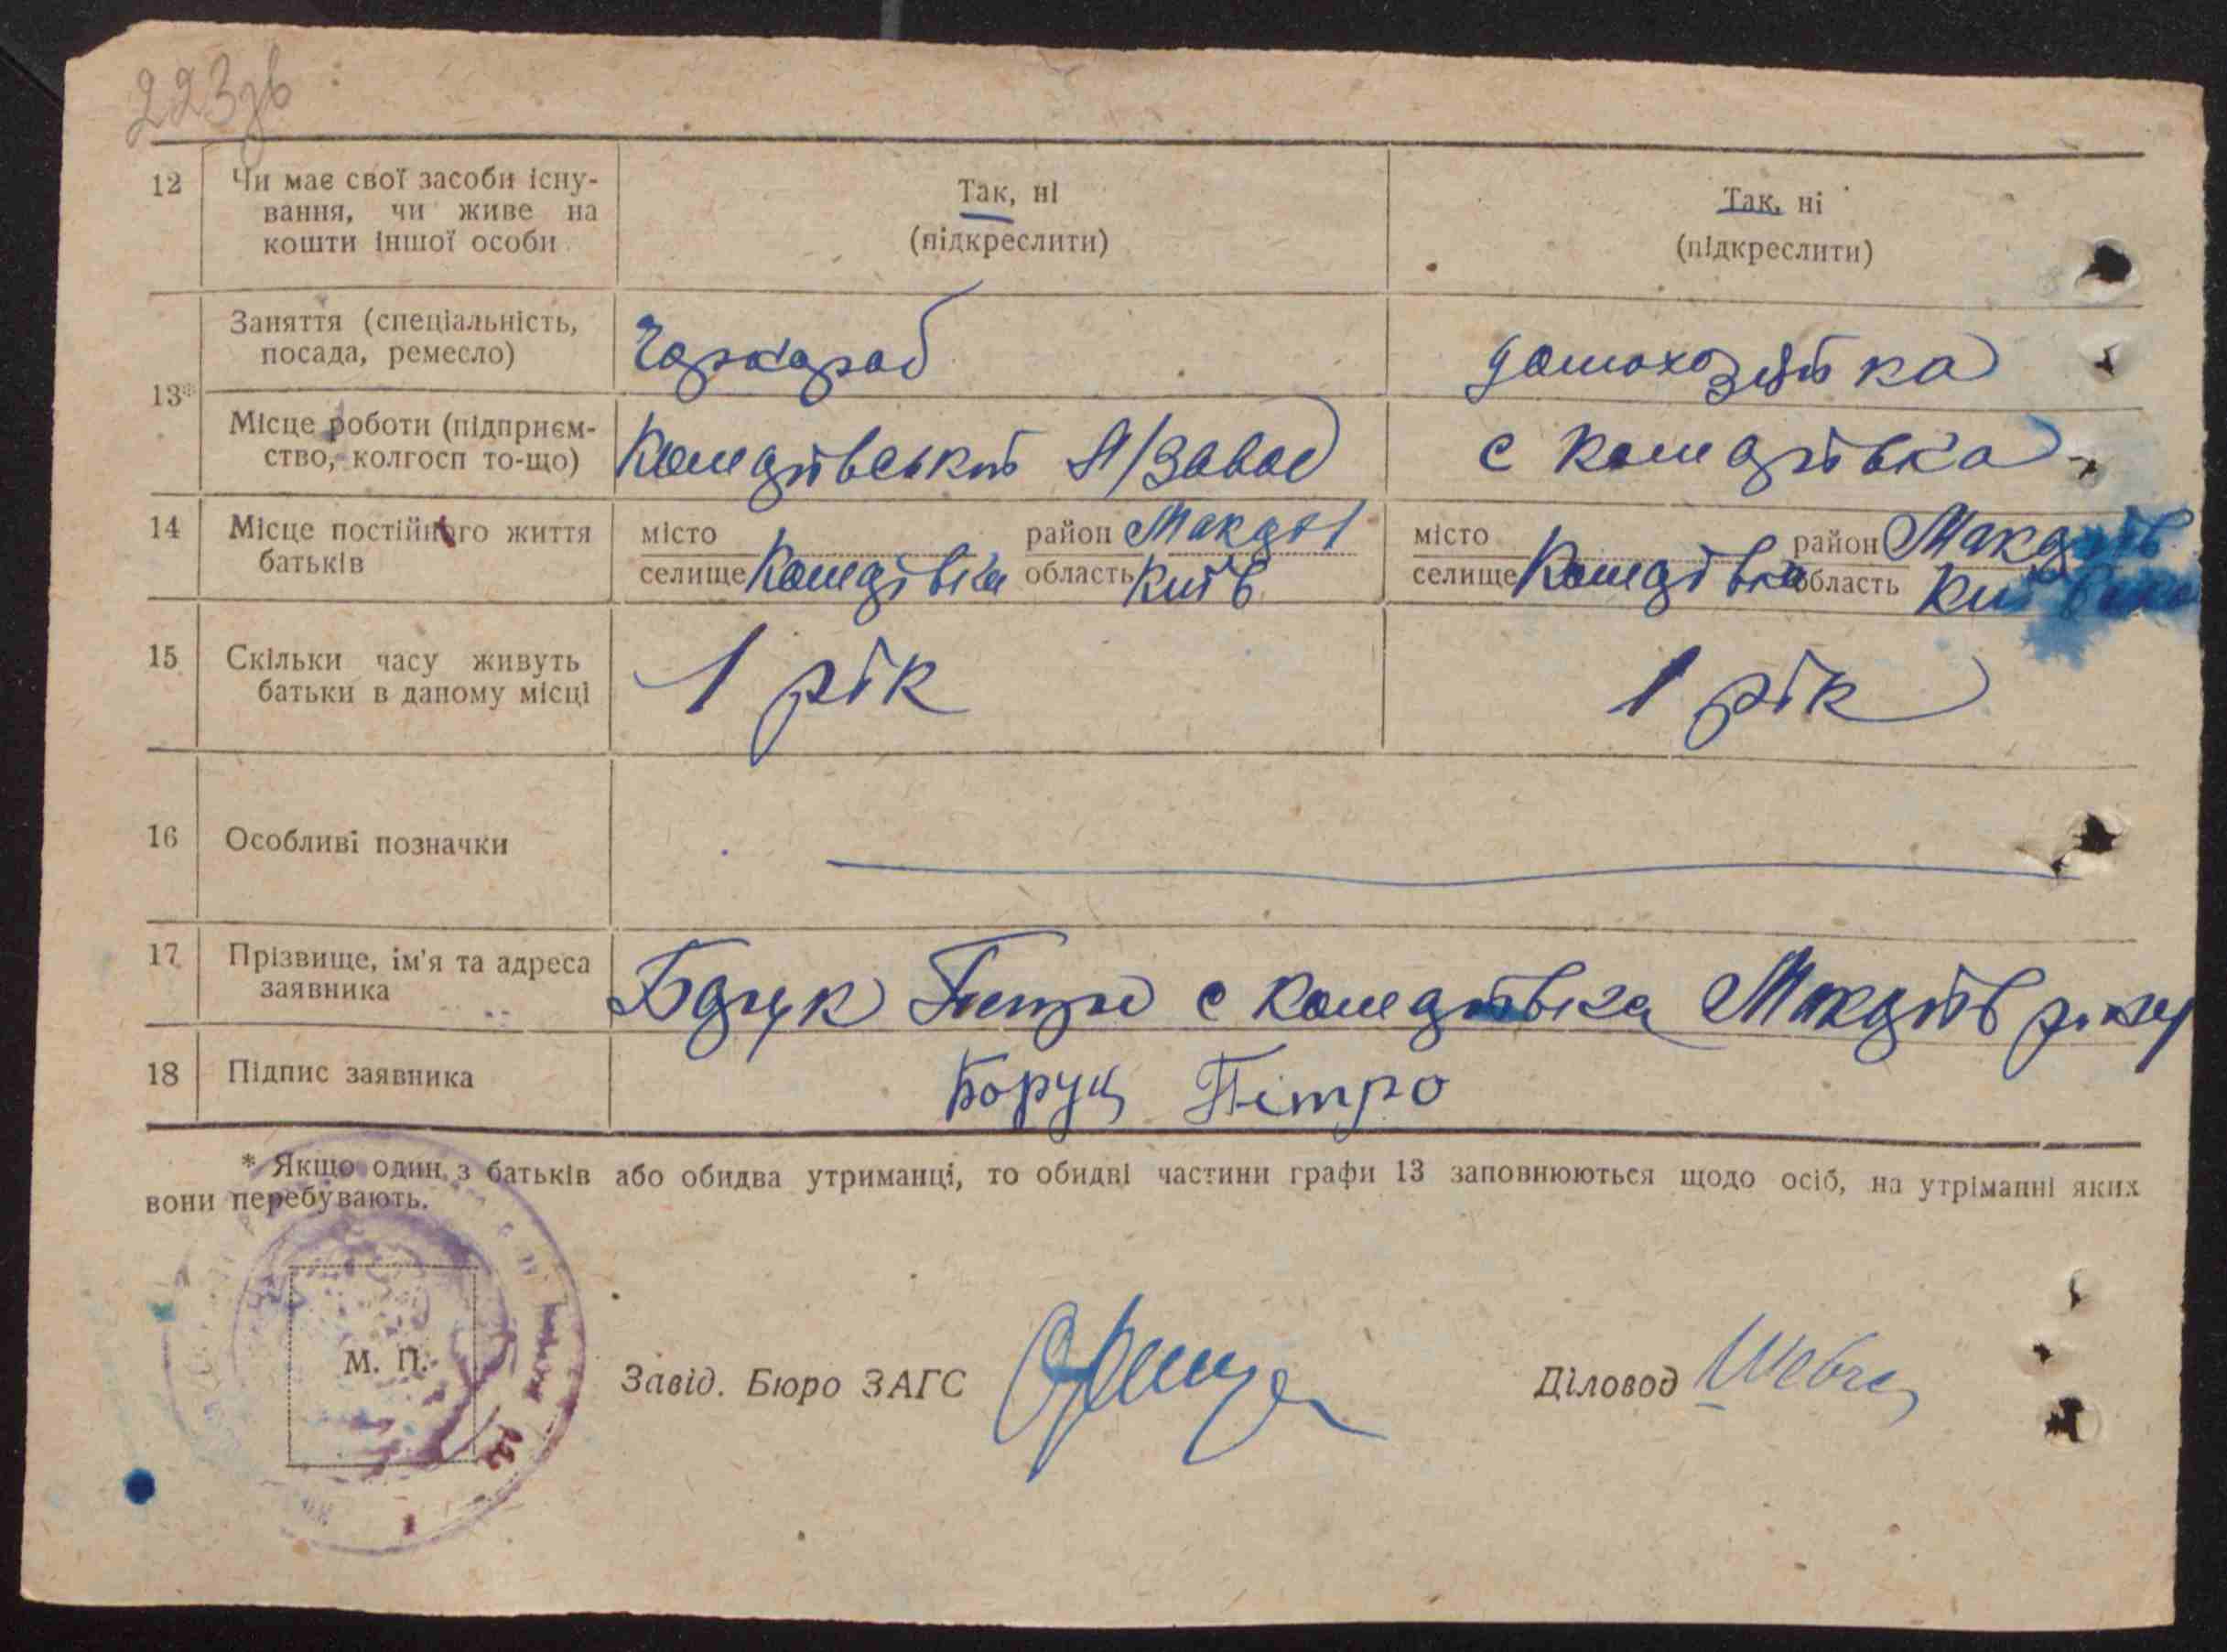 223зв
12 Чи має свої засоби існу-
вання, чи живе на
кошти іншої особи
Так, ні
(підкреслити)
Так, ні
(підкреслити)
13*
Заняття (спеціальність,
посада, ремесло)
чорнораб
домохозяйка
Місце роботи (підприєм-
ство, колгосп то-що)
завод
с
14 Місце постійного життя
батьків
місто район Макарів
селище область Київ
місто район Макарів
селище область Київська
15 Скільки часу живуть
батьки в даному місці
1 рік
1 рік
16 Особливі позначки
17 Прізвище, ім'я та адреса
заявника
Петро с Макарів
18 Підпис заявника
Борущ Пітро
* Якщо один з батьків або обидва утриманці, то обидві частини графи 13 заповнюються щодо осіб, на утріманні яких
вони перебувають.
М. П.
Завід. Бюро ЗАГС
Діловод